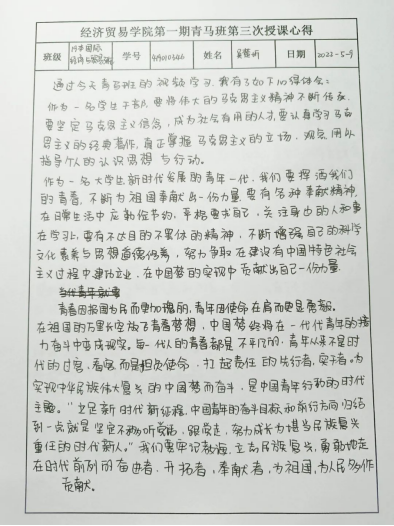 经济贸易学院第一期青马班第三次授课心得
班级 学号 姓名 日期 2022-5-9
通过今天青马班的视频学习,我有了如下心得体会:
作为一名学生干部,要将伟大的马克思主义精神不断传承,
要坚定马克思主义信念,成为社会有用的人才,要认真学习马克
思主义的经典著作,真正掌握马克思主义的立场、观点,用以
指导个人的认识思想与行动。
作为一名大学生新时代发展的青年一代,我们要挥洒我们
的青春,不断为祖国奉献出一份力量,要有各种奉献精神,
在日常生活中应敬位守约,严格要求自己,关注身边的人和事
在学习上,要有不达目的不罢休的精神,不断增强自己的科学
文化素养与思想道德修养,努力争取在建设有中国特色社会
主义过程中建功立业,在中国梦的实现中贡献出自己一份力量
当代青年就要
青春因报国为民而更加瑰丽,青年因使命在肩而更显勇毅。
在祖国的万里长空放飞青春梦想,中国梦必将在一代代青年的接
力奋斗中变成现实。每一代人的青春都是不平凡的,青年从来不是时
代的过客、看客,而是担负使命、扛起责任的先行者、实干者。为
实现中华民族伟大复兴的中国梦而奋斗,是中国青年行动的时代
主题。"立足新时代新征程,中国青年的奋斗目标和前行方向归结
到一点就是坚定不移听党话、跟党走,努力成长为堪当民族复兴
重任的时代新人。"我们要牢记教诲,立志民族复兴,勇敢地走
在时代前列的奋进者、开拓者、奉献者,为祖国,为人民多作
贡献。